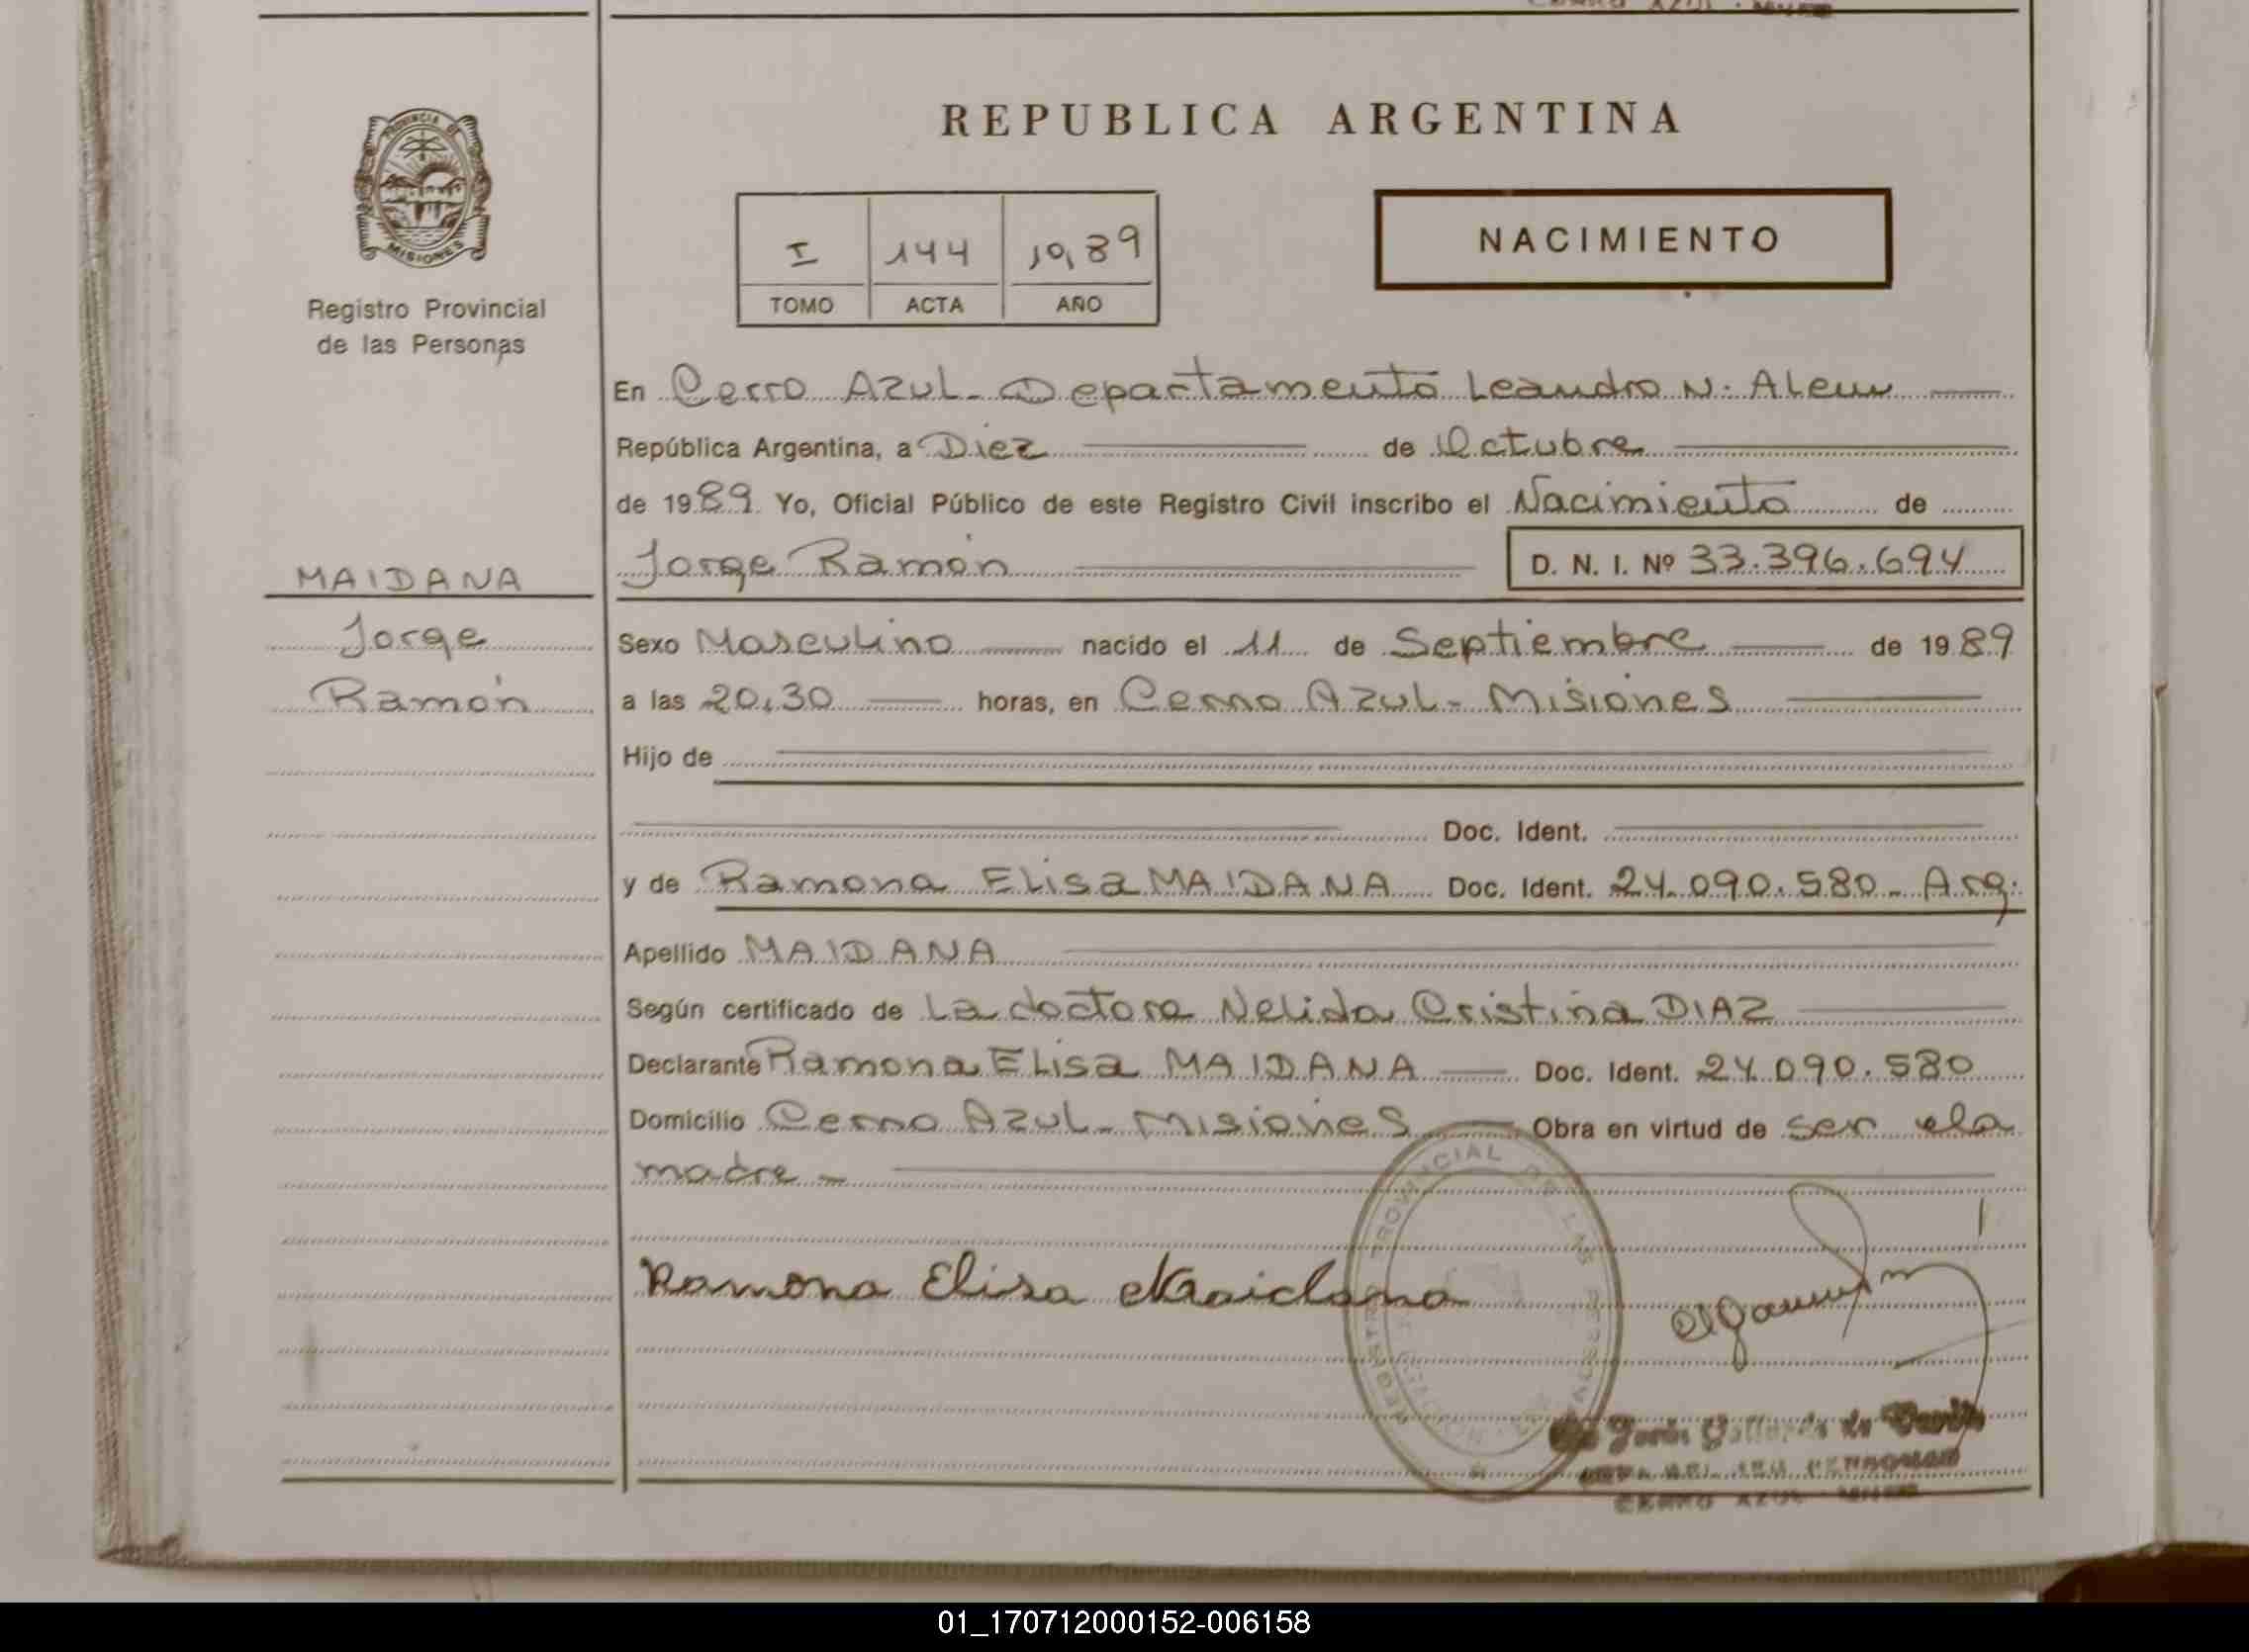 REPUBLICA ARGENTINA
PROVINCIA DE
MISIONES
Registro Provincial
de las Personas
I 144 19,89
TOMO ACTA AÑO
NACIMIENTO
En Cerro Azul - Departamento Leandro N. Alem
República Argentina, a Diez de Octubre
de 1989. Yo, Oficial Público de este Registro Civil inscribo el Nacimiento de
MAIDANA
Jorge
Ramón
Jorge Ramón D. N. I. Nº 33.396.694
Sexo Masculino nacido el 11 de Septiembre de 1989
a las 20,30 horas, en Cerro Azul - Misiones
Hijo de
Doc. Ident.
y de Ramona Elisa MAIDANA Doc. Ident. 24.090.580 - Arg.
Apellido MAIDANA
Según certificado de La doctora Nelida Cristina DIAZ
Declarante Ramona Elisa MAIDANA Doc. Ident. 24.090.580
Domicilio Cerro Azul - Misiones Obra en virtud de ser la
madre -
REGISTRO PROVINCIAL DE LAS PERSONAS
Ramona Elisa Maidana
CERRO AZUL
01_170712000152-006158